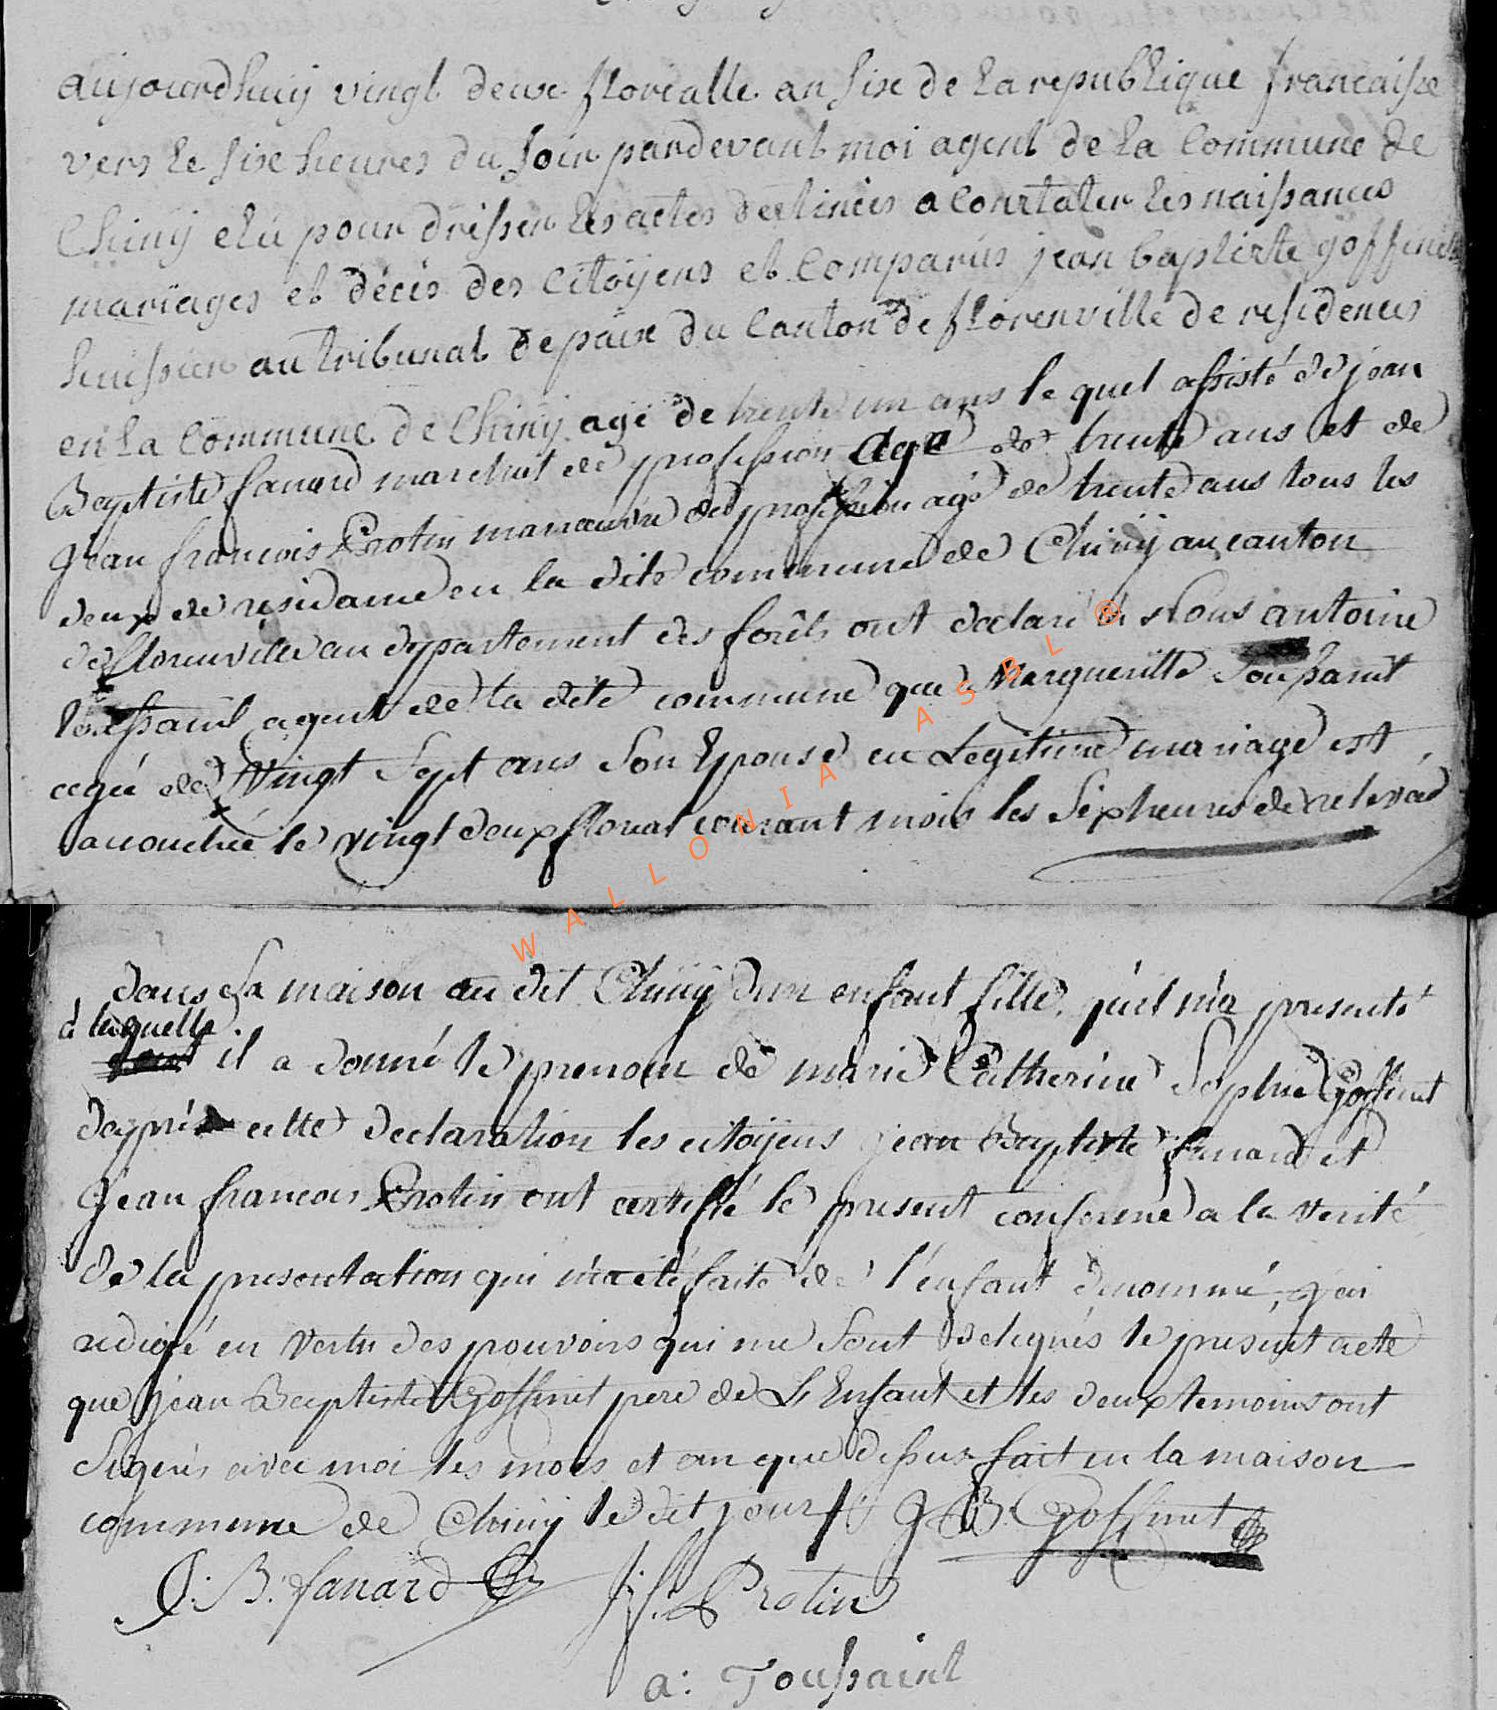 aujourdhuij vingt deux florealle an sixe de la republique francaisse
vers le sixe heures du soir pardevant moi agent de la Commune de
Chinij elú pour dresser les actes destinéés a Constater les naissances
mariages et décés des Citoÿens et Comparús jean baptiste goffinet
huissier au tribunal de paix du Canton de florenville de residences
en la Commune de Chinij agé de trente un ans le quel assisté de jean
Baptiste fanard marchant de profession agé de trente ans et de
Jean francois Protin manœuvre de profession agé de trente ans tous les
deux de residance en la dite commune de Chinij au canton
de florenville au departement des forêts ont declaré à Nous antoine
toussaint agent de la dite commune que Margueritte Toussaint
agée de Vingt Sept ans Son Epouse en Legitime mariage est
accouchée le vingt deux floreal courant mois les Six heures de relevée
dans sa maison au dit Chinij dun enfant fille quil m'a presenté
à laquelle
il a donné le prenom de marie Catherine Sophie Goffinet
daprés cette declaration les citoÿens jean Baptiste fanard et
Jean francois Protin ont certiffié le present conforme a la verité
de la presentation qui m'a été faite de l'enfant denommé, j'ai
redigé en Vertu des pouvoirs qui me Sont Delegués le present acte
que Jean Baptiste Goffinet pere de L'Enfant et les deux temoins ont
Signés avec moi les mois et an que dessus fait en la maison
commune de Chinij le dit jour J B Goffinet
J: B: fanard J: f: Protin
a: Toussaint
WALLONIA ASBL ®